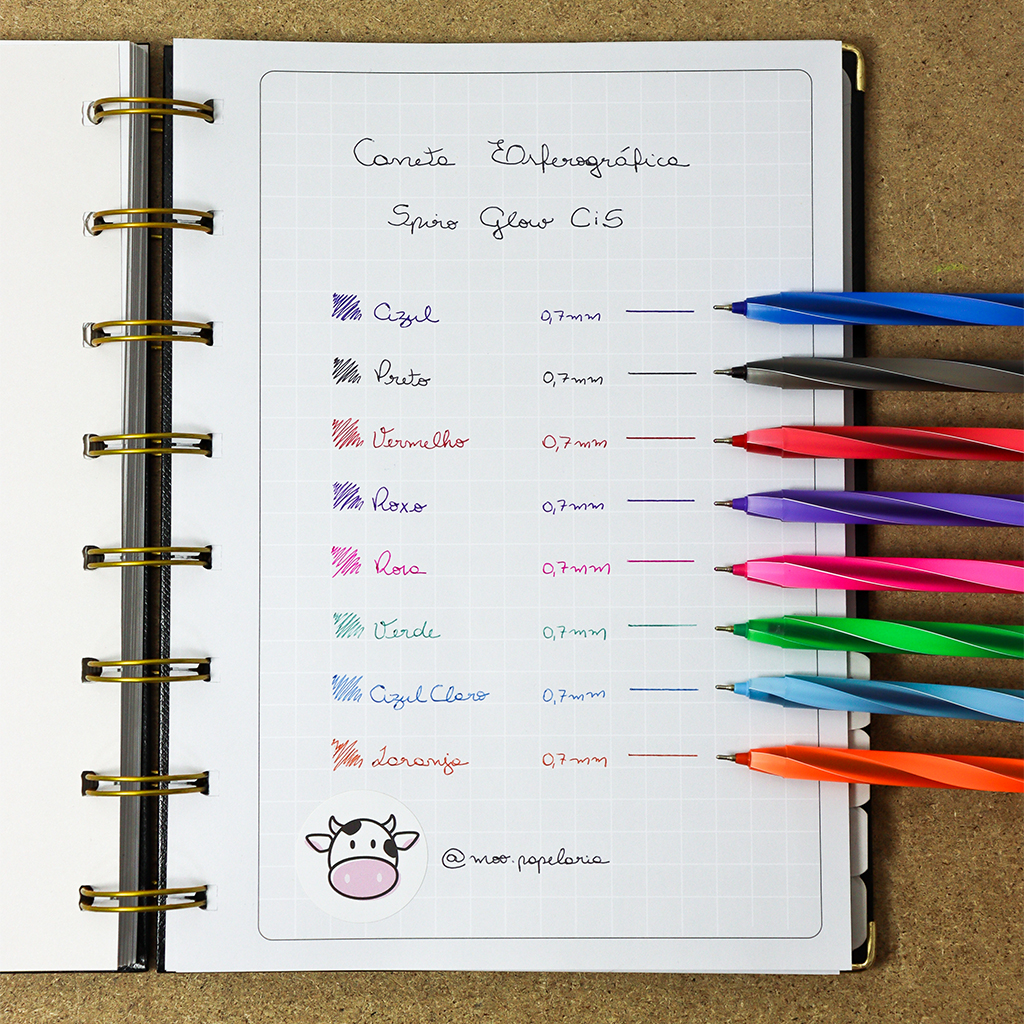 Caneta Esferográfica
Spiro Glow CiS
Azul 0,7mm
Preto 0,7mm
Vermelho 0,7mm
Roxo 0,7mm
Rosa 0,7mm
Verde 0,7mm
Azul Claro 0,7mm
Laranja 0,7mm
@moo.papelaria